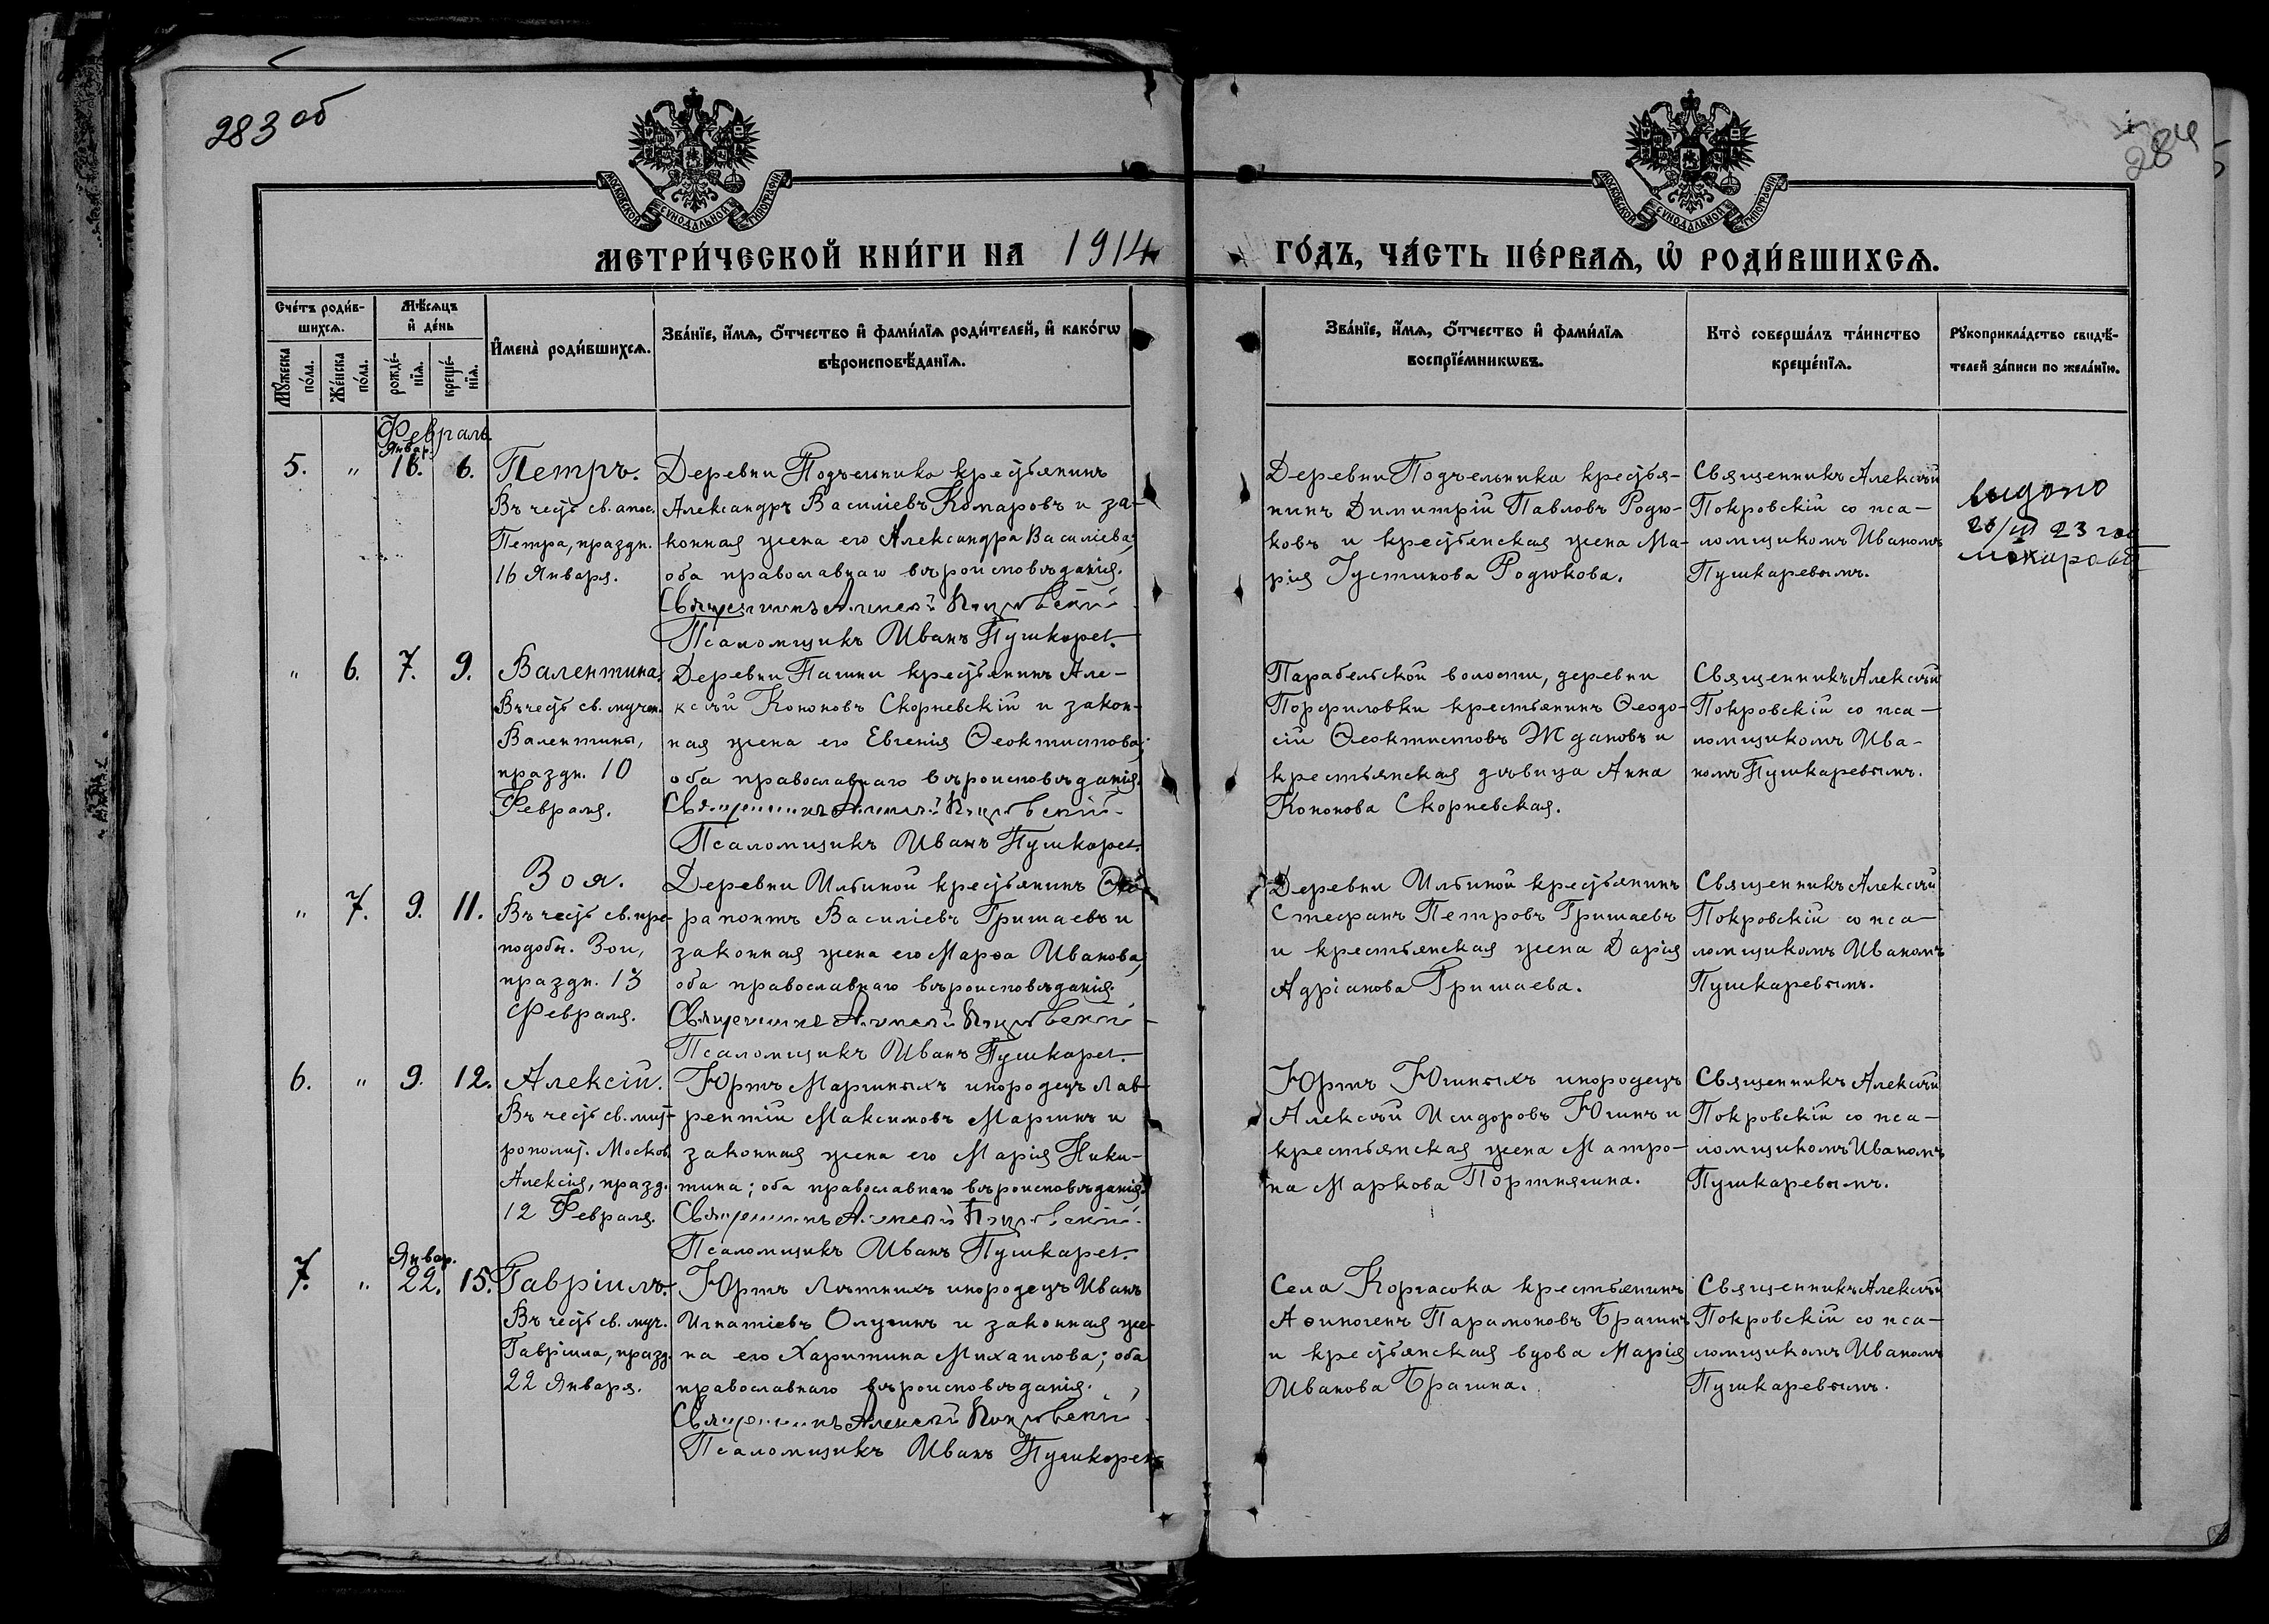 283 об
284
МОСКОВСКОЙ СѴНОДАЛЬНОЙ ТИПОГРАФІИ
МОСКОВСКОЙ СѴНОДАЛЬНОЙ ТИПОГРАФІИ
МЕТРИ́ЧЕСКОЙ КНИ́ГИ НА 1914 ГО́ДЪ, ЧА́СТЬ ПЕ́РВАѦ, Ѡ҆ РОДИ́ВШИХСѦ.
Сче́тъ роди́в-
шихсѧ.
Мꙋ́жеска
по́ла.
Же́нска
по́ла.
Мѣ́сѧцъ
и҆ де́нь
рожде́-
нїѧ.
креще́-
нїѧ.
И҆мена̀ роди́вшихсѧ.
Зва́нїе, и҆́мѧ, ѻ҆́тчество и҆ фами́лїѧ роди́телей, и҆ како́гѡ
вѣроисповѣ́данїѧ.
Зва́нїе, и҆́мѧ, ѻ҆́тчество и҆ фами́лїѧ
воспрїе́мникѡвъ.
Кто̀ соверша́лъ та́инство
креще́нїѧ.
Рꙋкоприкла́дство свидѣ́-
телей за́писи по жела́нїю.
Февраль.
Январ.
5. " 16. 6.
Петръ.
Въ честь св. апос.
Петра, праздн.
16 Января.
Деревни Подъельника крестьянинъ
Александръ Василіевъ Комаровъ и за-
конная жена его Александра Василіева;
оба православнаго вѣроисповѣданія.
Священникъ Алексѣй Покровскій
Псаломщикъ Иванъ Пушкарев.
Деревни Подъельника крестья-
нинъ Димитрій Павловъ Родю-
ковъ и крестьянская жена Ма-
рія Іустинова Родюкова.
Священникъ Алексѣй
Покровскій со пса-
ломщикомъ Иваномъ
Пушкаревымъ.
выдано
23 год
" 6. 7. 9.
Валентина.
Въ честь св. мучен.
Валентины,
праздн. 10
Февраля.
Деревни Пашни крестьянинъ Але-
ксѣй Кононовъ Скорневскій и закон-
ная жена его Евгенія Ѳеоктистова;
оба православнаго вѣроисповѣданія.
Священникъ Алексѣй Покровскій
Псаломщикъ Иванъ Пушкарев.
Парабельской волости, деревни
Перфиловки крестьянинъ Ѳеодо-
сій Ѳеоктистовъ Ждановъ и
крестьянская дѣвица Анна
Кононова Скорневская.
Священникъ Алексѣй
Покровскій со пса-
ломщикомъ Ива-
номъ Пушкаревымъ.
" 7. 9. 11.
Зоя.
Въ честь св. пре-
подобн. Зои,
праздн. 13
Февраля.
Деревни Ильиной крестьянинъ
рапонтъ Василіевъ Гришаевъ и
законная жена его Марѳа Иванова;
оба православнаго вѣроисповѣданія.
Священникъ Алексѣй Покровскій
Псаломщикъ Иванъ Пушкарев.
Деревни Ильиной крестьянинъ
Стефанъ Петровъ Гришаевъ
и крестьянская жена Дарія
Адріанова Гришаева.
Священникъ Алексѣй
Покровскій со пса-
ломщикомъ Иваномъ
Пушкаревымъ.
6. " 9. 12.
Алексій.
Въ честь св. мит-
рополит. Москов.
Алексія, празд.
12 Февраля.
Юртъ Маргиныхъ инородецъ Лав-
рентій Максимовъ Маргинъ и
законная жена его Марія Ники-
тина; оба православнаго вѣроисповѣданія.
Священникъ Алексѣй Покровскій
Псаломщикъ Иванъ Пушкарев.
Юртъ Югиныхъ инородецъ
Алексѣй Исидоровъ Югинъ и
крестьянская жена Матро-
на Маркова Портнягина.
Священникъ Алексѣй
Покровскій со пса-
ломщикомъ Иваномъ
Пушкаревымъ.
Январ.
7. " 22. 15.
Гавріилъ.
Въ честь св. муч.
Гавріила, празд.
22 Января.
Юртъ Лѣтнихъ инородецъ Иванъ
Игнатіевъ Олугинъ и законная же-
на его Харитина Михаилова; оба
православнаго вѣроисповѣданія.
Священникъ Алексѣй Покровскій
Псаломщикъ Иванъ Пушкарев
Села Коргасока крестьянинъ
Аѳиногенъ Парамоновъ Брагинъ
и крестьянская вдова Марія
Иванова Брагина.
Священникъ Алексѣй
Покровскій со пса-
ломщикомъ Иваномъ
Пушкаревымъ.